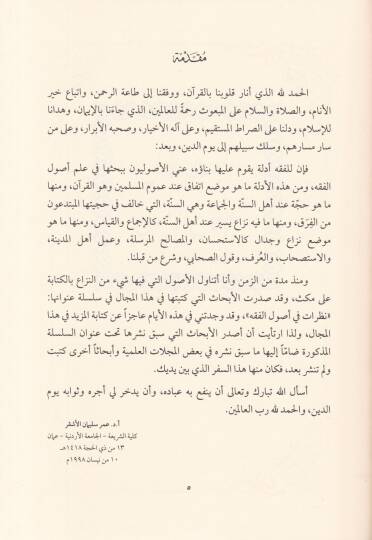 مُقَدِّمَة
الحمد لله الذي أنار قلوبنا بالقرآن، ووفقنا إلى طاعة الرحمن، واتباع خير
الأنام، والصلاة والسلام على المبعوث رحمةً للعالمين، الذي جاءَنا بالإيمان، وهدانا
للإسلام، ودلنا على الصراط المستقيم، وعلى آله الأخيار، وصحبه الأبرار، وعلى من
سار مسارهم، وسلك سبيلهم إلى يوم الدين، وبعد:
فإن للفقه أدلة يقوم عليها بناؤه، عني الأصوليون ببحثها في علم أصول
الفقه، ومن هذه الأدلة ما هو موضع اتفاق عند عموم المسلمين وهو القرآن، ومنها
ما هو حجّة عند أهل السنّة والجماعة وهي السنّة، التي خالف في حجيتها المبتدعون
من الفِرَق، ومنها ما فيه نزاع يسير عند أهل السنّة، كالإجماع والقياس، ومنها ما هو
موضع نزاع وجدال كالاستحسان، والمصالح المرسلة، وعمل أهل المدينة،
والاستصحاب، والعُرف، وقول الصحابي، وشرع من قبلنا.
ومنذ مدة من الزمن وأنا أتناول الأصول التي فيها شيء من النزاع بالكتابة
على مكث، وقد صدرت الأبحاث التي كتبتها في هذا المجال في سلسلة عنوانها:
«نظرات في أصول الفقه»، وقد وجدتني في هذه الأيام عاجزاً عن كتابة المزيد في هذا
المجال، ولذا ارتأيت أن أصدر الأبحاث التي سبق نشرها تحت عنوان السلسلة
المذكورة ضامّاً إليها ما سبق نشره في بعض المجلات العلمية وأبحاثاً أخرى كتبت
ولم تنشر بعد، فكان منها هذا السفر الذي بين يديك.
أسأل الله تبارك وتعالى أن ينفع به عباده، وأن يدخر لي أجره وثوابه يوم
الدين، والحمد لله رب العالمين.
أ.د. عمر سليمان الأشقر
كلية الشريعة - الجامعة الأردنية - عمان
١٣ من ذي الحجة ١٤١٨هـ
١٠ من نيسان ١٩٩٨م
٥